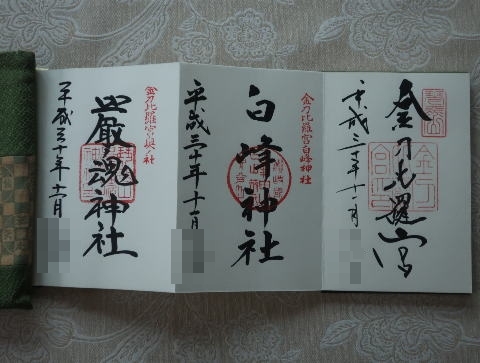 金刀比羅宮
平成三十年十一月
金刀比羅宮白峰神社
白峰神社
平成三十年十一月
金刀比羅宮奥社
厳魂神社
平成三十年十一月